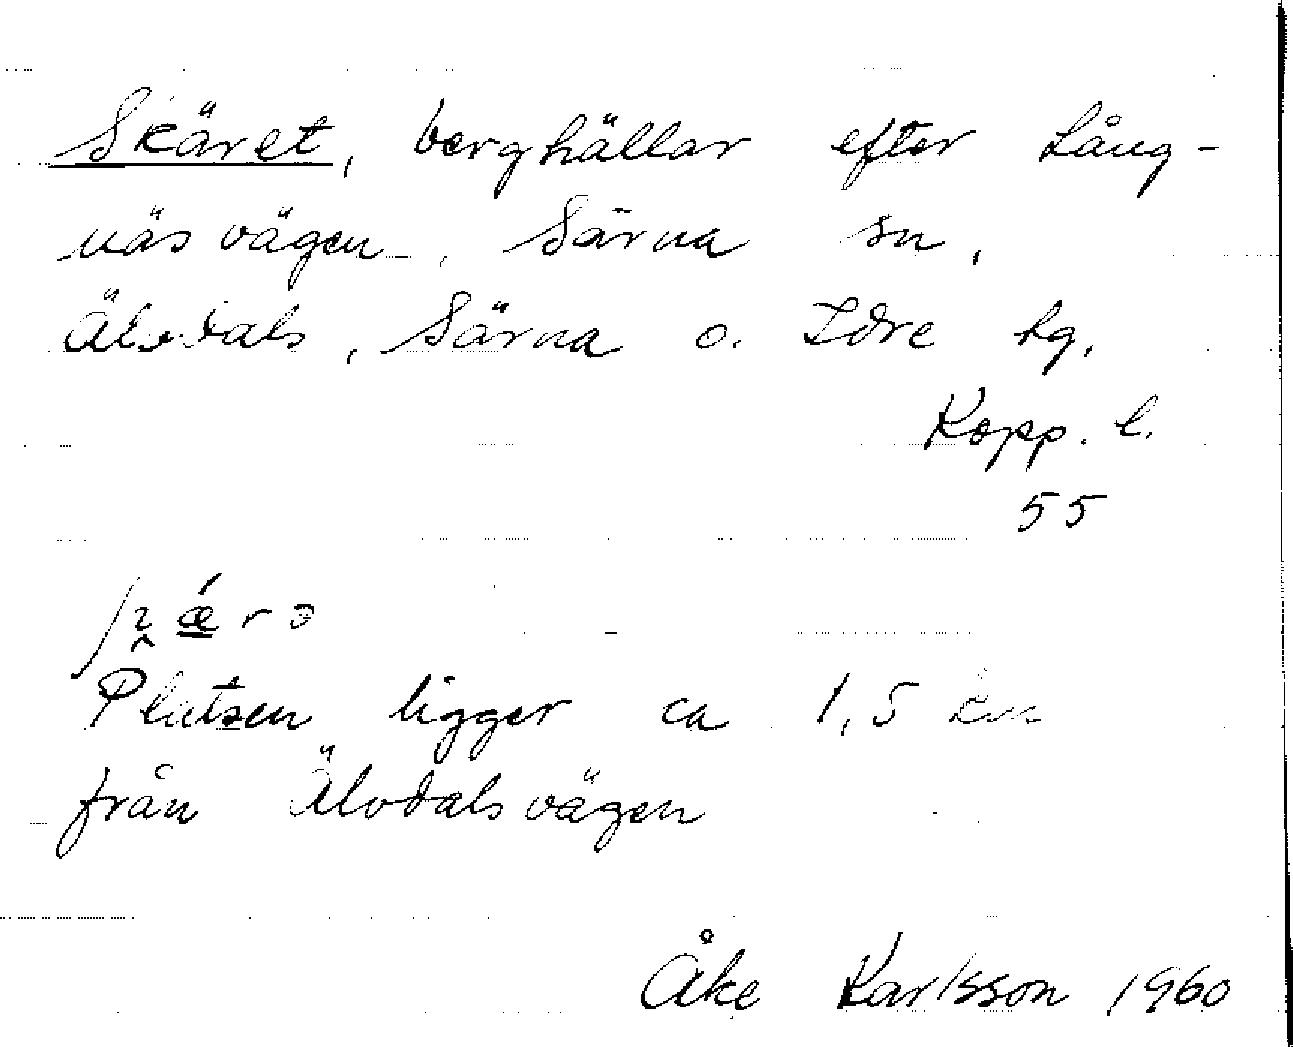 Skäret, berghällar efter Lång-
näsvägen, Särna sn,
Älvdals, Särna o. Idre tg.
Kopp. l.
55
Platsen ligger ca 1,5 km
från Älvdalsvägen
Åke Karlsson 1960